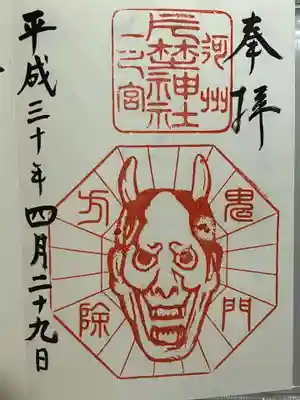 奉拝
河州
片埜神社
一ノ宮
鬼門
方除
平成三十年四月二十九日